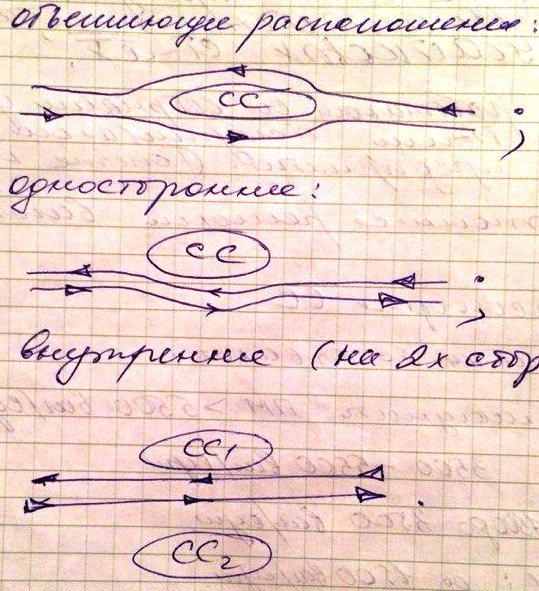 объемлющее расположение:
СС
;
одностороннее:
СС
;
внутреннее (на 2х стор
СС1
.
СС2